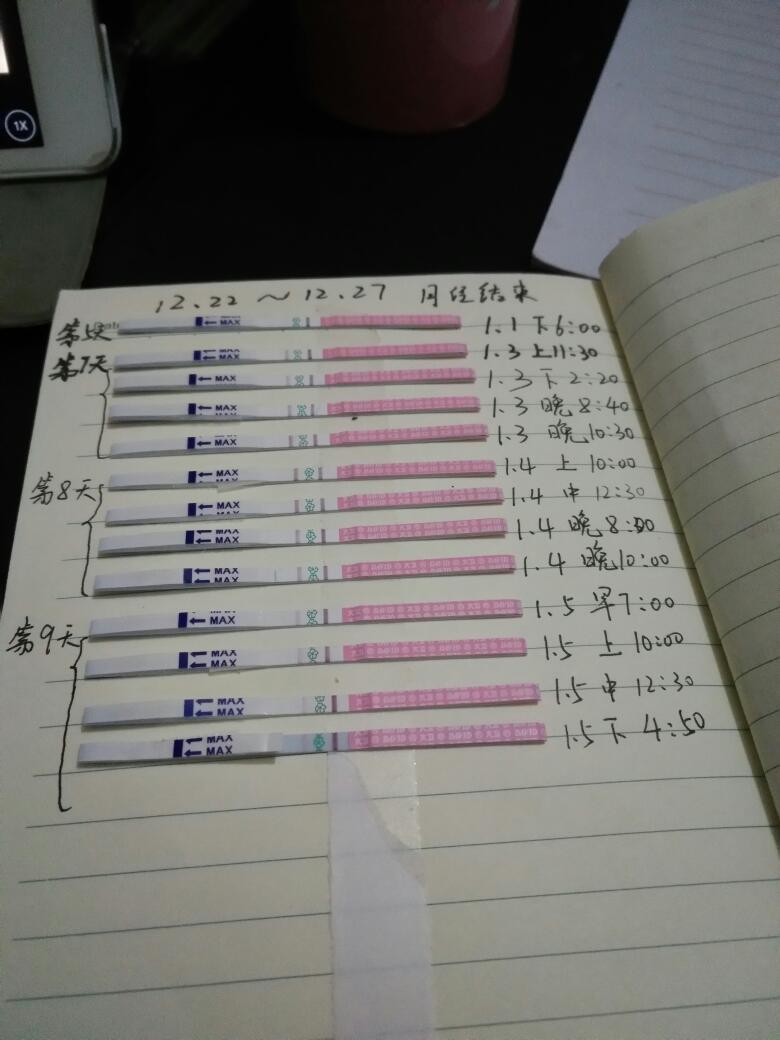 12.22 ~ 12.27 月经结束
第5天 MAX 1.1 下6:00
第7天 MAX 1.3 上11:30
MAX 1.3 下2:20
MAX 1.3 晚8:40
MAX 1.3 晚10:30
第8天 MAX 1.4 上 10:00
MAX 1.4 中 12:30
MAX 1.4 晚8:00
MAX MAX 1.4 晚10:00
MAX 1.5 早7:00
第9天 MAX MAX 1.5 上 10:00
MAX MAX 1.5 中 12:30
MAX MAX 1.5 下 4:50
1X